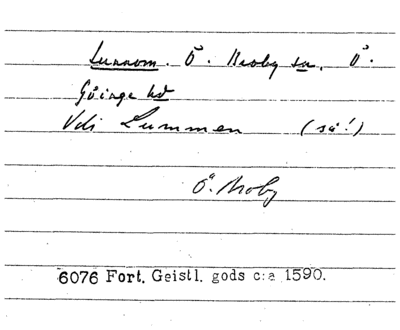 Lunnom. Ö. Broby sn. Ö.
Göinge hd
Vdi Lummen (så!)
Ö. Broby
6076 Fort. Geistl. gods c:a 1590.